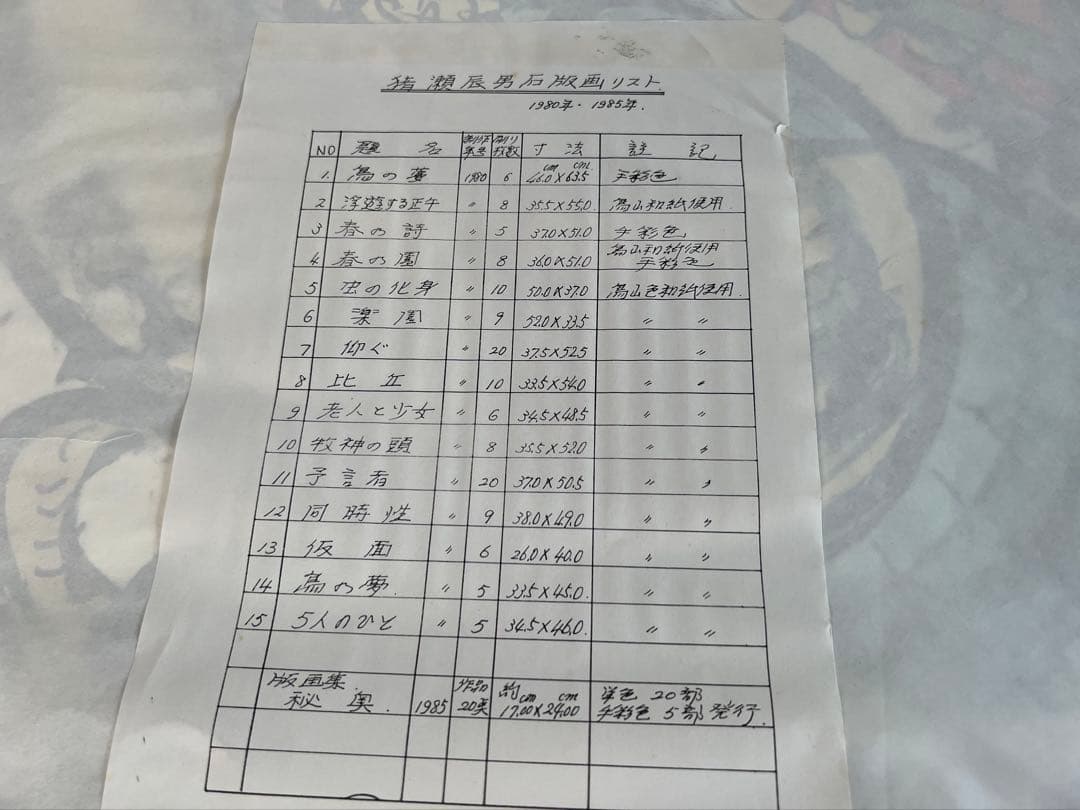 猪瀬辰男石版画リスト
1980年・1985年.
NO 題名 制作年号 刷り枚数 寸法 註記
1. 鳥の 1980 6 46.0cm×63.5cm 手彩色
2 浮遊する正午 〃 8 35.5×55.0 烏山和紙使用
3 春の詩 〃 5 37.0×51.0 手彩色
4 春の園 〃 8 36.0×51.0 烏山和紙使用 手彩色
5 虫の化身 〃 10 50.0×37.0 烏山色和紙使用.
6 楽園 〃 9 52.0×33.5 〃 〃
7 仰ぐ 〃 20 37.5×52.5 〃 〃
8 比丘 〃 10 33.5×54.0 〃 〃
9 老人と少女 〃 6 34.5×48.5 〃 〃
10 牧神の頭 〃 8 35.5×52.0 〃 〃
11 予言者 〃 20 37.0×50.5 〃 〃
12 同時性 〃 9 38.0×49.0 〃 〃
13 仮面 〃 6 26.0×40.0 〃 〃
14 鳥の夢. 〃 5 33.5×45.0. 〃 〃
15 5人のひと 〃 5 34.5×46.0. 〃 〃
版画集 秘奥 1985 作品20葉 約17.00cm×24.00cm 単色20部 手彩色5部発行.